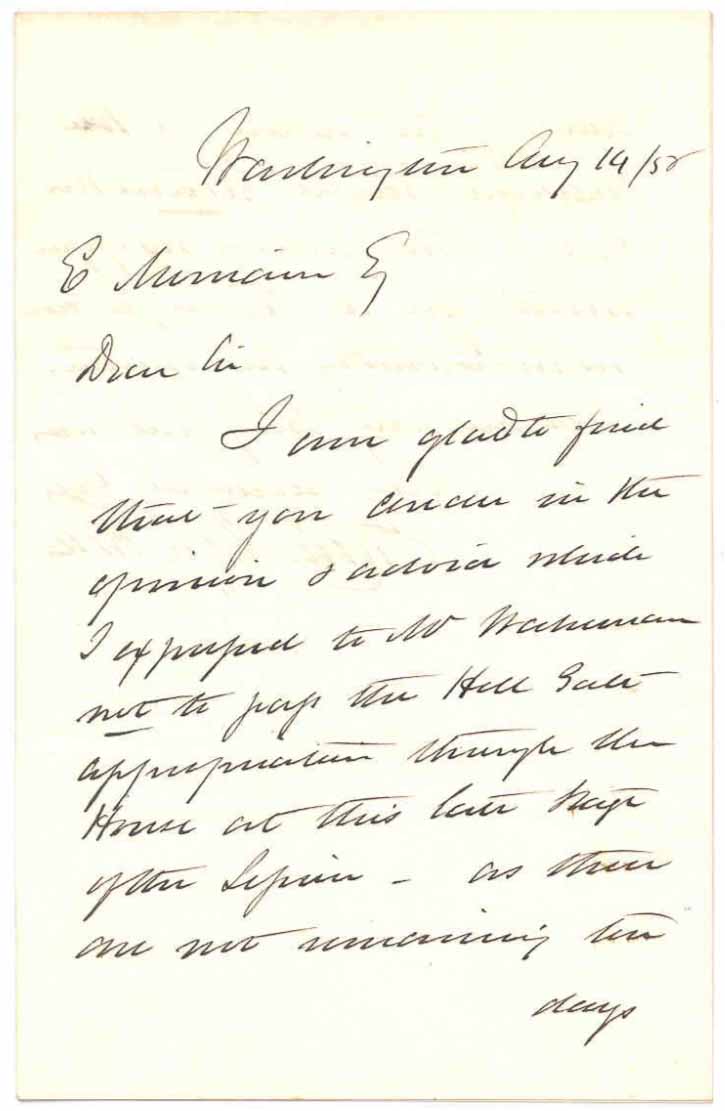 Washington Aug 14/58
E Merriam Esq
Dear Sir
I am glad to find
that you concur in the
opinion & advice which
I expressed to Mr Wakeman
not to pass the Hell Gate
appropriation through the
House at this late stage
of the Session - as there
are not remaining ten
days